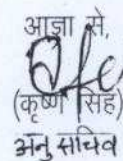 आज्ञा से,
(कृष्ण सिंह)
अनु सचिव